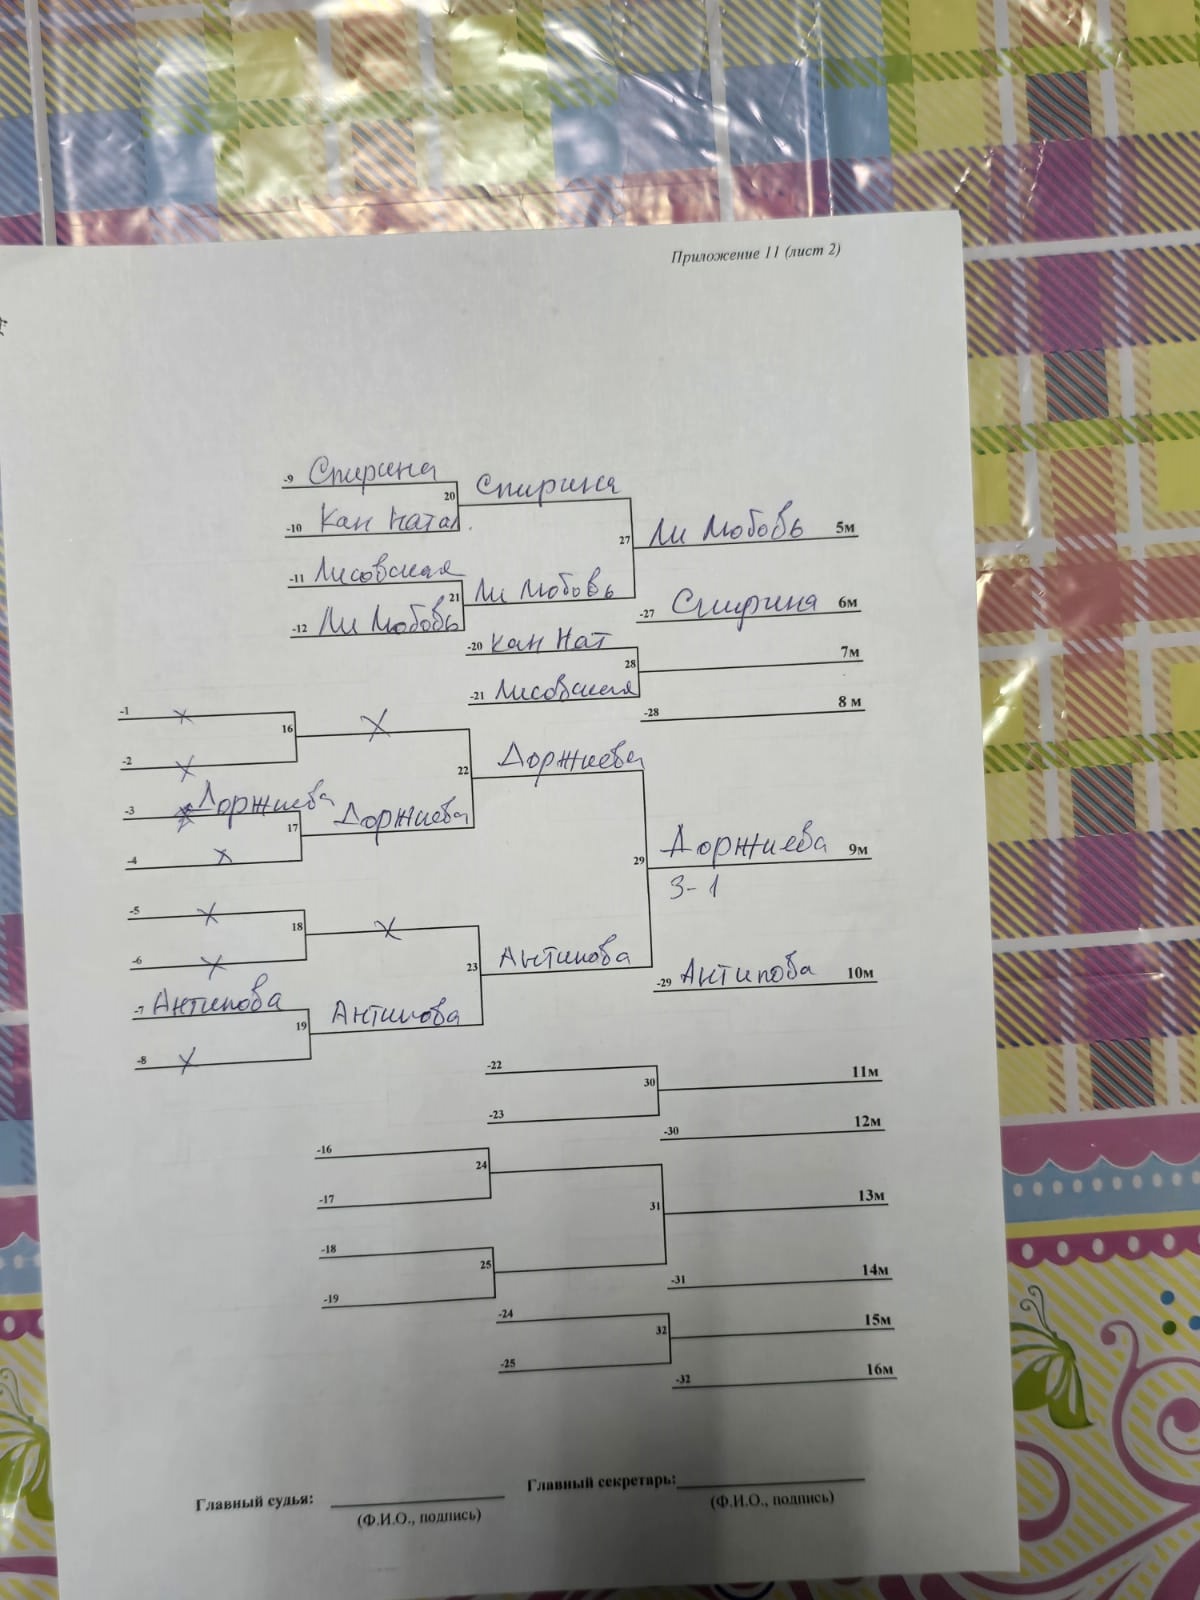 Приложение 11 (лист 2)
-9 Спирина
20 Спирина
-10 Кан Ната
27 Ли Любовь 5м
-11 Лисовская
21 Ли Любовь
-12 Ли Любовь
-27 Спирина 6м
-20 Кан Нат
28 7м
-21 Лисовская
-28 8 м
-1 х
16 х
-2 х
22 Доржиева
-3 Доржиева
17 Доржиева
-4 х
29 Доржиева 9м
3-1
-5 х
18 х
-6 х
23 Антипова
-29 Антипова 10м
-7 Антипова
19 Антипова
-8 х
-22
30 11м
-23
-30 12м
-16
24
-17
31 13м
-18
25
-19
-31 14м
-24
32 15м
-25
-32 16м
Главный судья:
(Ф.И.О., подпись)
Главный секретарь:
(Ф.И.О., подпись)